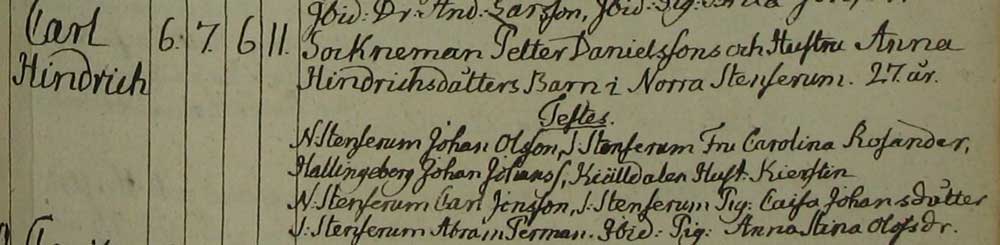 Jbid: Dr: And. Larsson, Jbid: Pig: Brita
Carl 6. 7. 6 11. Sockneman Petter Danielssons och Hustru Anna
Hindrich Hindrichsdåtters Barn i Norra Stenserum. 27. år.
Testes.
N. Stenserum Johan Olsson, S: Stenserum Fru Carolina Rosander,
Hallingeberg Johan Johanss, Kiälldalen Hust. Kierstin
N. Stenserum Carl Jonsson, S: Stenserum Pig: Caisa Johansdåtter
S: Stenserum Abram Perman. Jbid: Pig: Anna Stina Olofsdr.